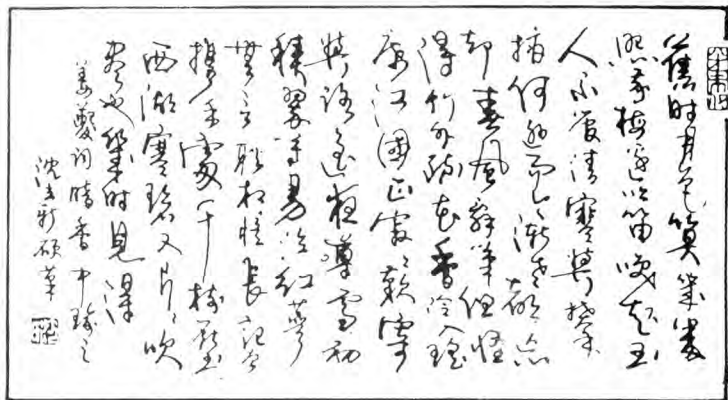 舊時月色算幾番
照我梅邊吹笛喚起玉
人不管清寒與攀
摘何遜而今漸老都忘
卻春風詞筆但怪
得竹外疏花香冷入瑤
席江國正寂寂歎寄
與路遙夜雪初
積翠尊易泣紅萼
無言耿相憶長記曾
攜手處千樹壓
西湖寒碧又片片吹
盡也幾時見得
姜夔詞暗香
沈